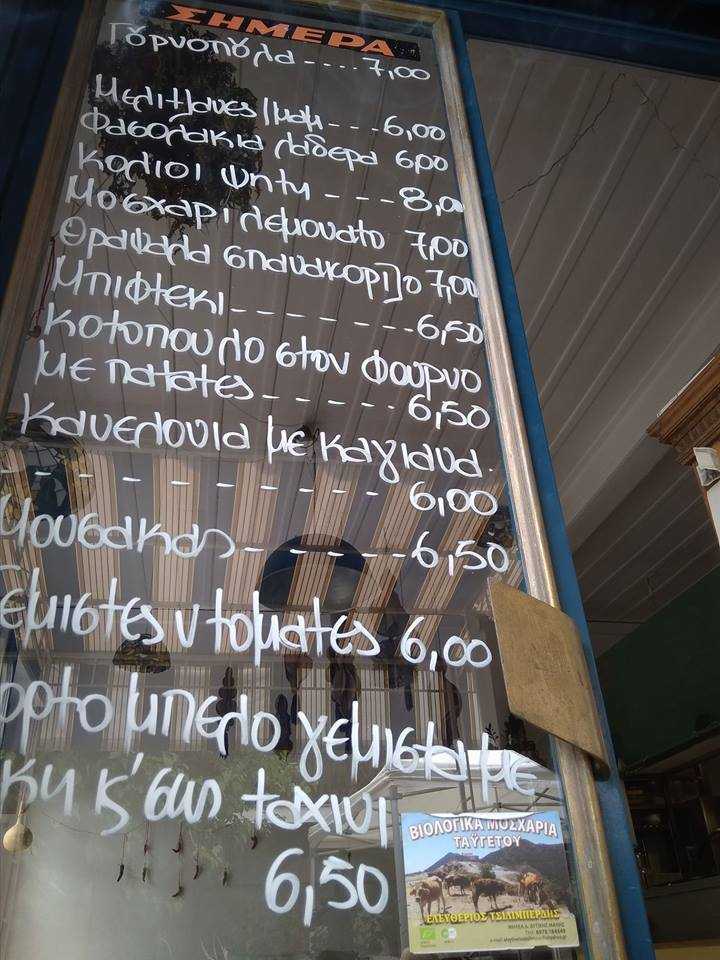 ΣΗΜΕΡΑ
Γουρνοπουλα ---- 7,00
Μελιτζανες Ιμαμ --- 6,00
Φασολακια λαδερα 6,00
Κολιοι ψητη --- 8,00
Μοσχαρι λεμονατο 7,00
Θραψαλα σπανακοριζο 7,00
Μπιφτεκι -------- 6,50
Κοτοπουλο στον φουρνο
με πατατες ------ 6,50
Κανελονια με καγιανα.
-------- 6,00
Μουσακας ------ 6,50
εμιστες ντοματες 6,00
ορτομπελο γεμιστα με
κ'σως ταχινι
6,50
ΒΙΟΛΟΓΙΚΑ ΜΟΣΧΑΡΙΑ
ΤΑΥΓΕΤΟΥ
ΕΛΕΥΘΕΡΙΟΣ ΤΣΙΛΙΜΠΕΡΔΗΣ